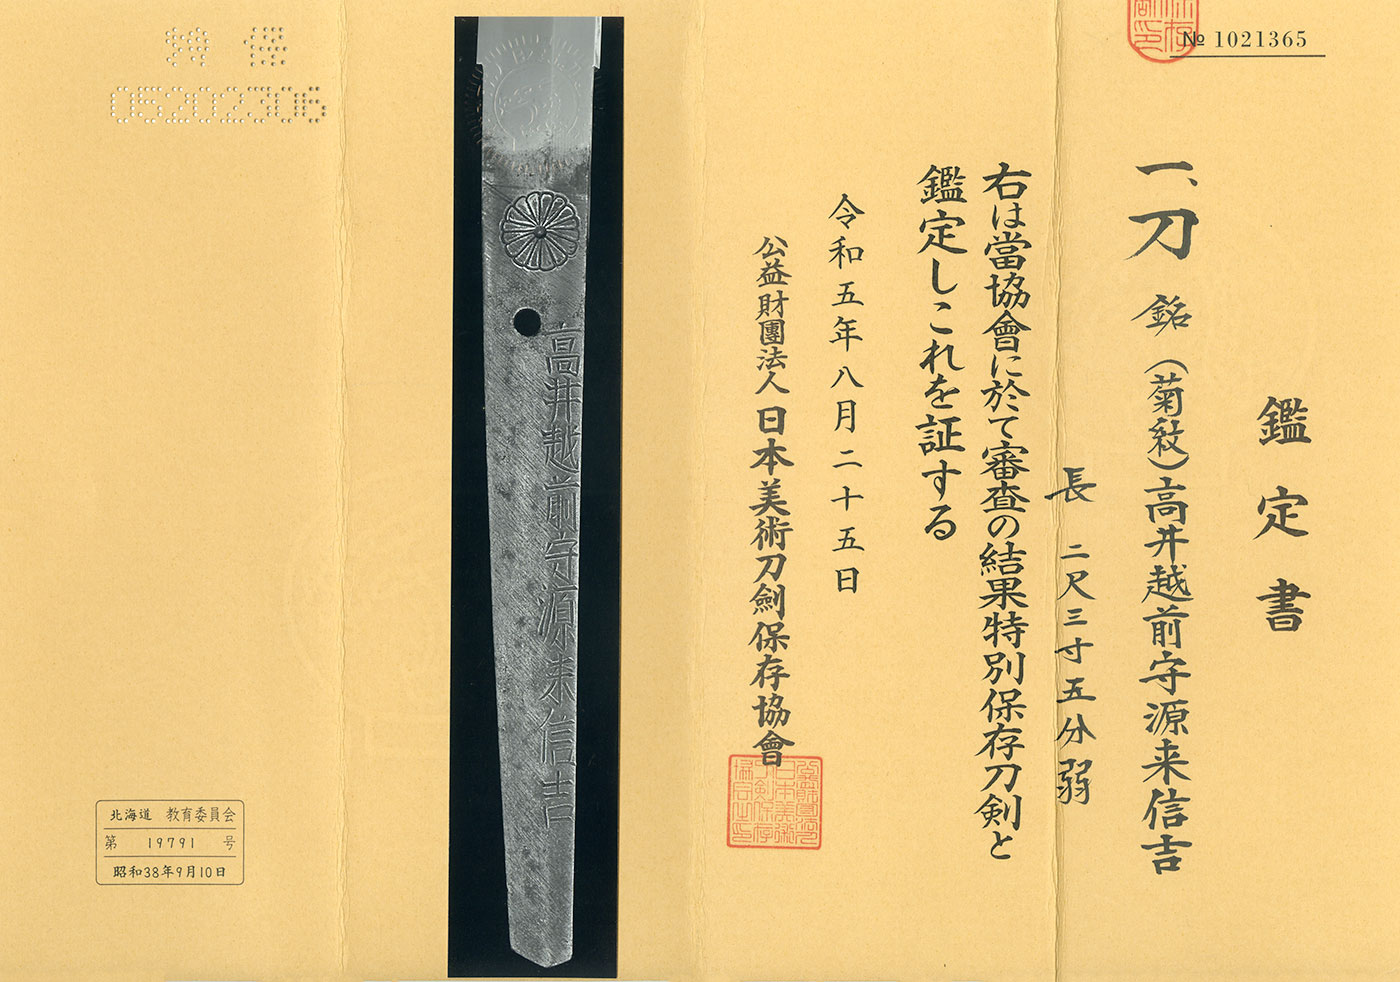 № 1021365
鑑定書
一、刀 銘 (菊紋)高井越前守源来信吉
長 二尺三寸五分弱
右は當協會に於て審査の結果特別保存刀剣と
鑑定しこれを証する
令和五年八月二十五日
公益財團法人 日本美術刀劍保存協會
高井越前守源来信吉
05202306
北海道 教育委員会
第 19791 号
昭和38年9月10日